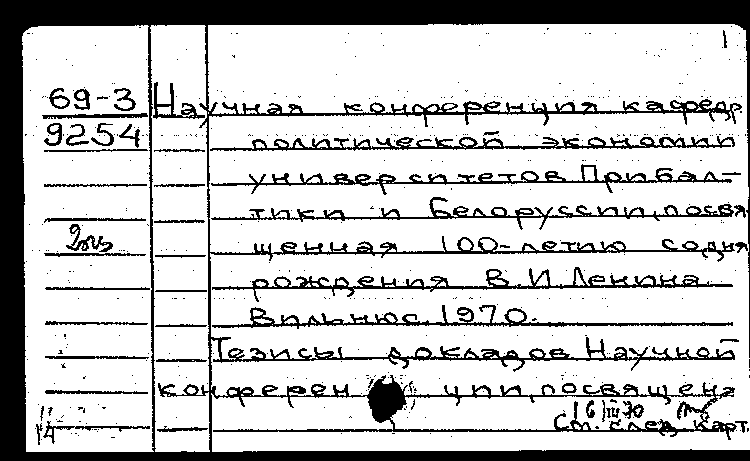 1
69-3 Научная конференция кафедр
9254 политической экономии
университетов Прибал-
тики и Белоруссии, посвя
2экз
щенная 100-летию со дня
рождения В.И.Ленина.
Вильнюс. 1970.
Тезисы докладов Научной
конферен ции, посвящена
16/III 70
См. след. карт.
14